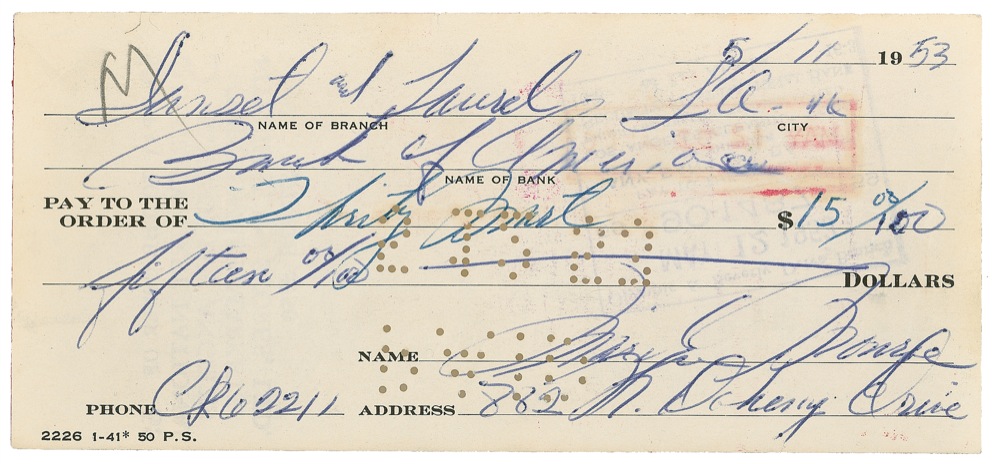 M
5/11 1953
Sunset and Laurel L.A. - 46
NAME OF BRANCH CITY
Bank of America
NAME OF BANK
PAY TO THE
ORDER OF Thrifty Mart $15 00/100
fifteen 00/100 DOLLARS
NAME Marilyn Monroe
PHONE CR 62211 ADDRESS 882 N. Doheny Drive
2226 1-41* 50 P.S.